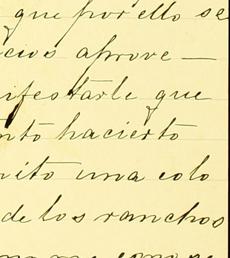 que por ello se
cios aprove —
nifestarle que
nto hacierto
nito una colo
de los ranchos